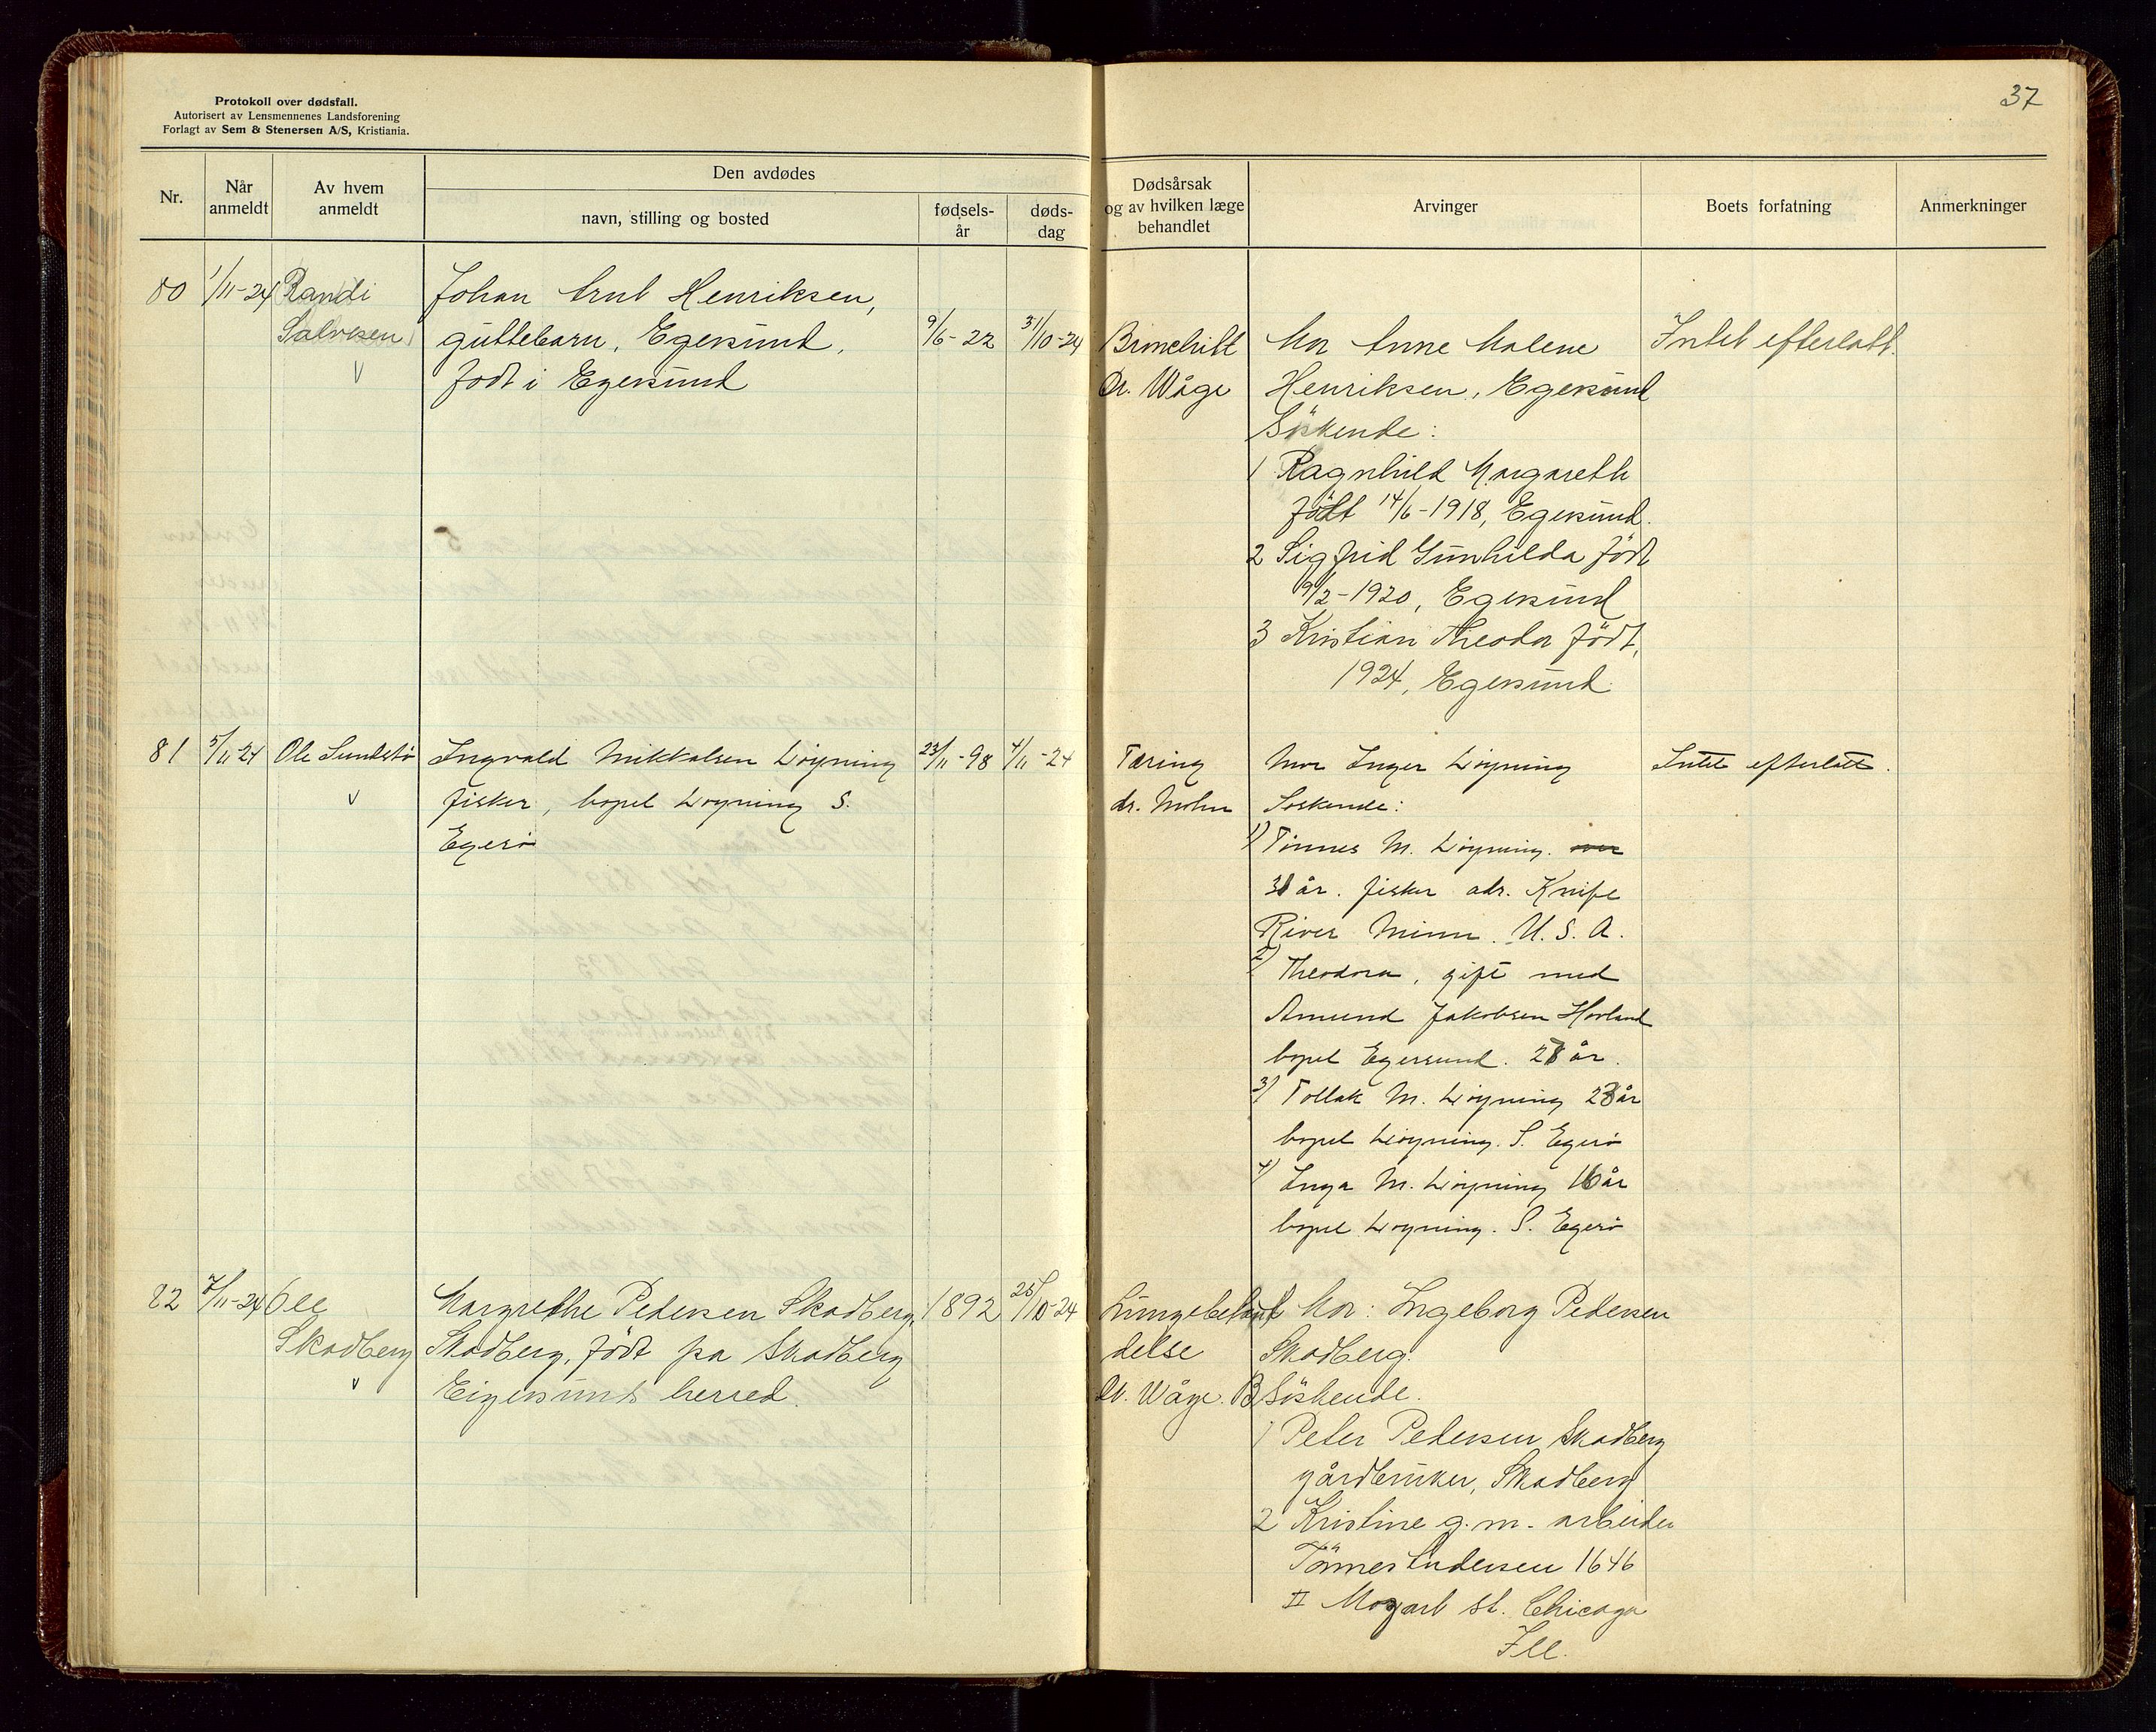 37
Protokoll over dødsfall.
Autorisert av Lensmennenes Landsforening
Forlagt av Sem & Stenersen A/S, Kristiania.
Nr.
Når
anmeldt
Av hvem
anmeldt
Den avdødes
navn, stilling og bosted
fødsels-
år
døds-
dag
Dødsårsak
og av hvilken læge
behandlet
Arvinger
Boets forfatning
Anmerkninger
80 1/11-24 Randi
Salvesen
v
Johan Arnt Henriksen,
guttebarn, Egersund,
født i Egersund
9/6-22 31/10-24
Dr. Våge
Mor Anne Malene
Henriksen, Egersund
Söskende:
1 Ragnhild Margareth
födt 14/6-1918, Egersund.
2 Sigfrid Gunhilda födt
9/2-1920, Egersund
3 Kristian Theodor födt,
1924, Egersund
Intet efterlatt.
81 5/11-24 Ole Sundstø
v
Ingvald Mikkalsen Løyning
fisker, bopel Løyning S.
Egerø
23/11-98 4/11-24
Tæring
dr. Mohn
Mor Inger Løyning
Søskende:
1) Tønnes M. Løyning.
31 år. fisker adr. Knife
River Minn. U.S.A.
2) Theodora, gift med
Amund Jakobsen Hovland
bopel Egersund. 28 år.
3) Tollak M. Løyning 23 år
bopel Løyning. S. Egerø
4) Inga M. Løyning 16 år
bopel Løyning. S. Egerø
Intet efterlatt.
82 7/11-24 Ole
Skadberg
v
Margrethe Pedersen Skadberg,
Skadberg, födt pa Skadberg
Eigersunds herred.
1892 25/10-24
delse
Dr. Våge.
Mor: Ingeborg Pedersen
Skadberg.
B Söskende.
1 Peter Pedersen Skadberg
gårdbruker, Skadberg
2 Kristine g.m. arbeider
Tönnes Andersen 1646
II Mozart st. Chicago
Ill.